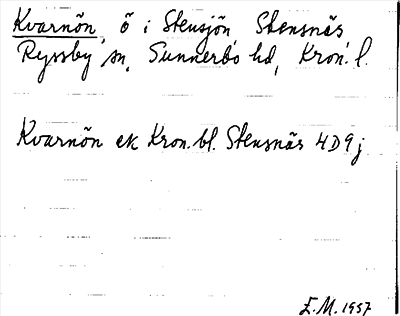 Kvarnön, ö i Stensjön, Stensnäs
Ryssby sn, Sunnerbo hd, Kron. l.
Kvarnön ek Kron. bl. Stensnäs 4D9j
E.M. 1957